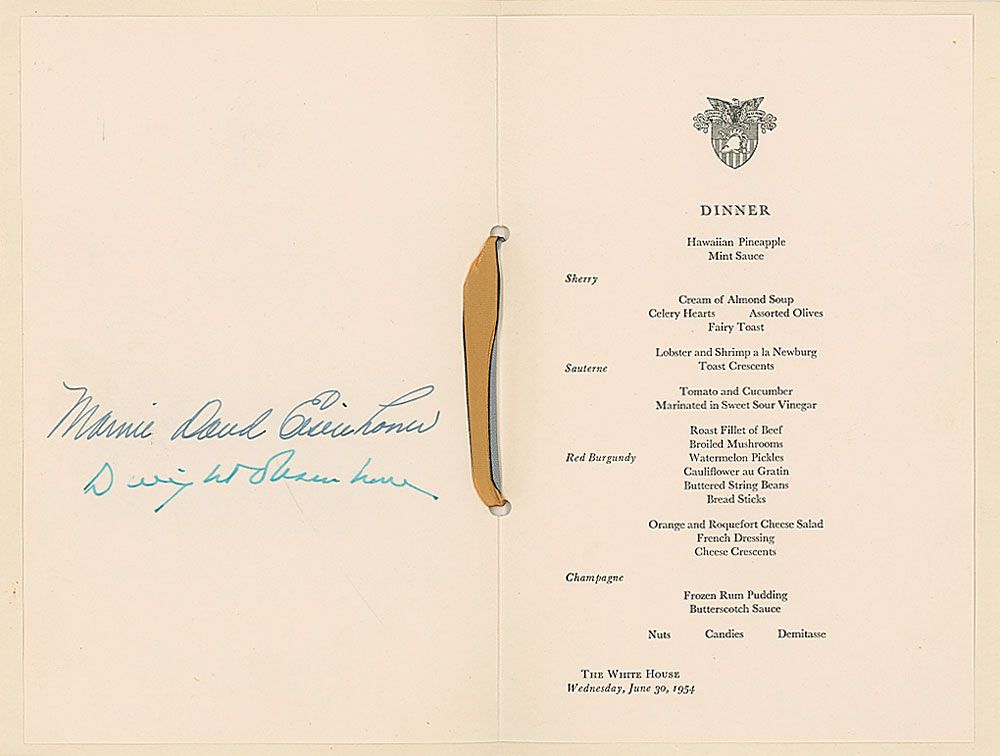 Mamie Doud Eisenhower
Dwight Eisenhower
DINNER
Hawaiian Pineapple
Mint Sauce
Sherry
Cream of Almond Soup
Celery Hearts Assorted Olives
Fairy Toast
Lobster and Shrimp a la Newburg
Sauterne
Toast Crescents
Tomato and Cucumber
Marinated in Sweet Sour Vinegar
Roast Fillet of Beef
Broiled Mushrooms
Red Burgundy Watermelon Pickles
Cauliflower au Gratin
Buttered String Beans
Bread Sticks
Orange and Roquefort Cheese Salad
French Dressing
Cheese Crescents
Champagne
Frozen Rum Pudding
Butterscotch Sauce
Nuts Candies Demitasse
THE WHITE HOUSE
Wednesday, June 30, 1954